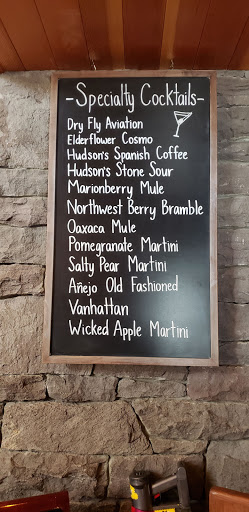 -Specialty Cocktails-
Dry Fly Aviation
Elderflower Cosmo
Hudson's Spanish Coffee
Hudson's Stone Sour
Marionberry Mule
Northwest Berry Bramble
Oaxaca Mule
Pomegranate Martini
Salty Pear Martini
Añejo Old Fashioned
Vanhattan
Wicked Apple Martini